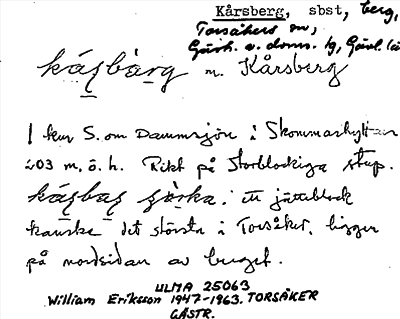 Kårsberg, sbst, berg,
Torsåkers sn,
Gästr. ö. doms. hg, Gävl. län
kårsbärg m. Kårsberg
1 km S. om Dammsjön i Skommarhyttan
203 m. ö. h. Rikt på storblockiga stup.
jätteblock
kanske det största i Torsåker, ligger
på nordsidan av berget.
ULMA 25063
William Eriksson 1947-1963. TORSÅKER
GÄSTR.